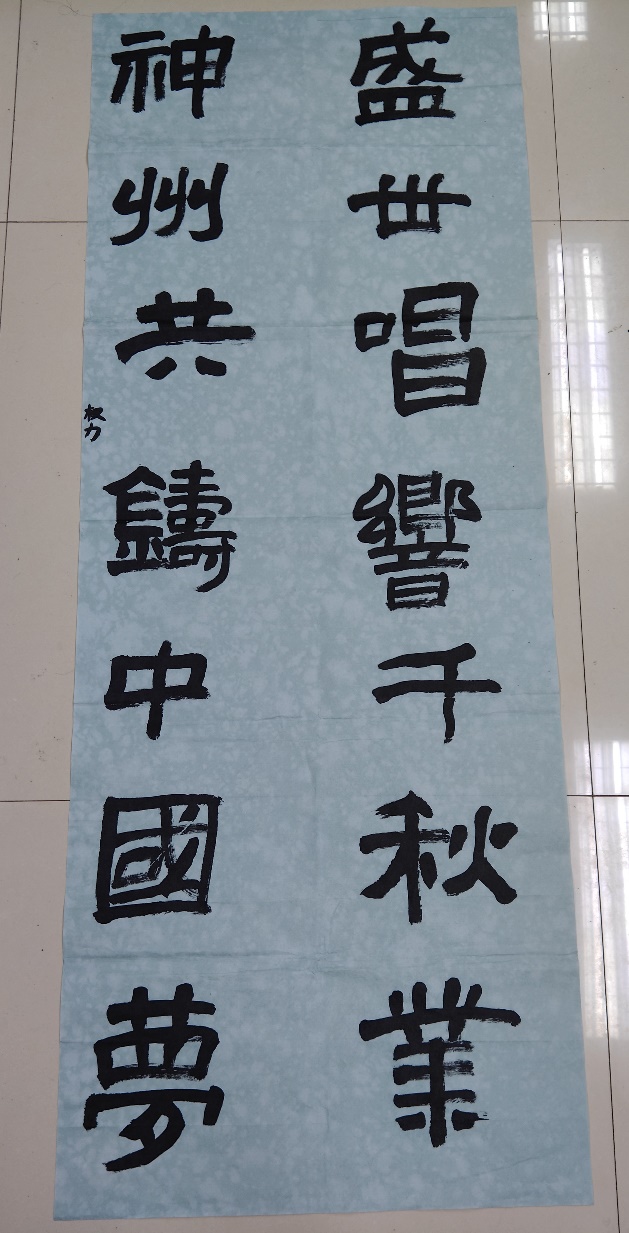 盛世唱響千秋業
神州共鑄中國夢
权力